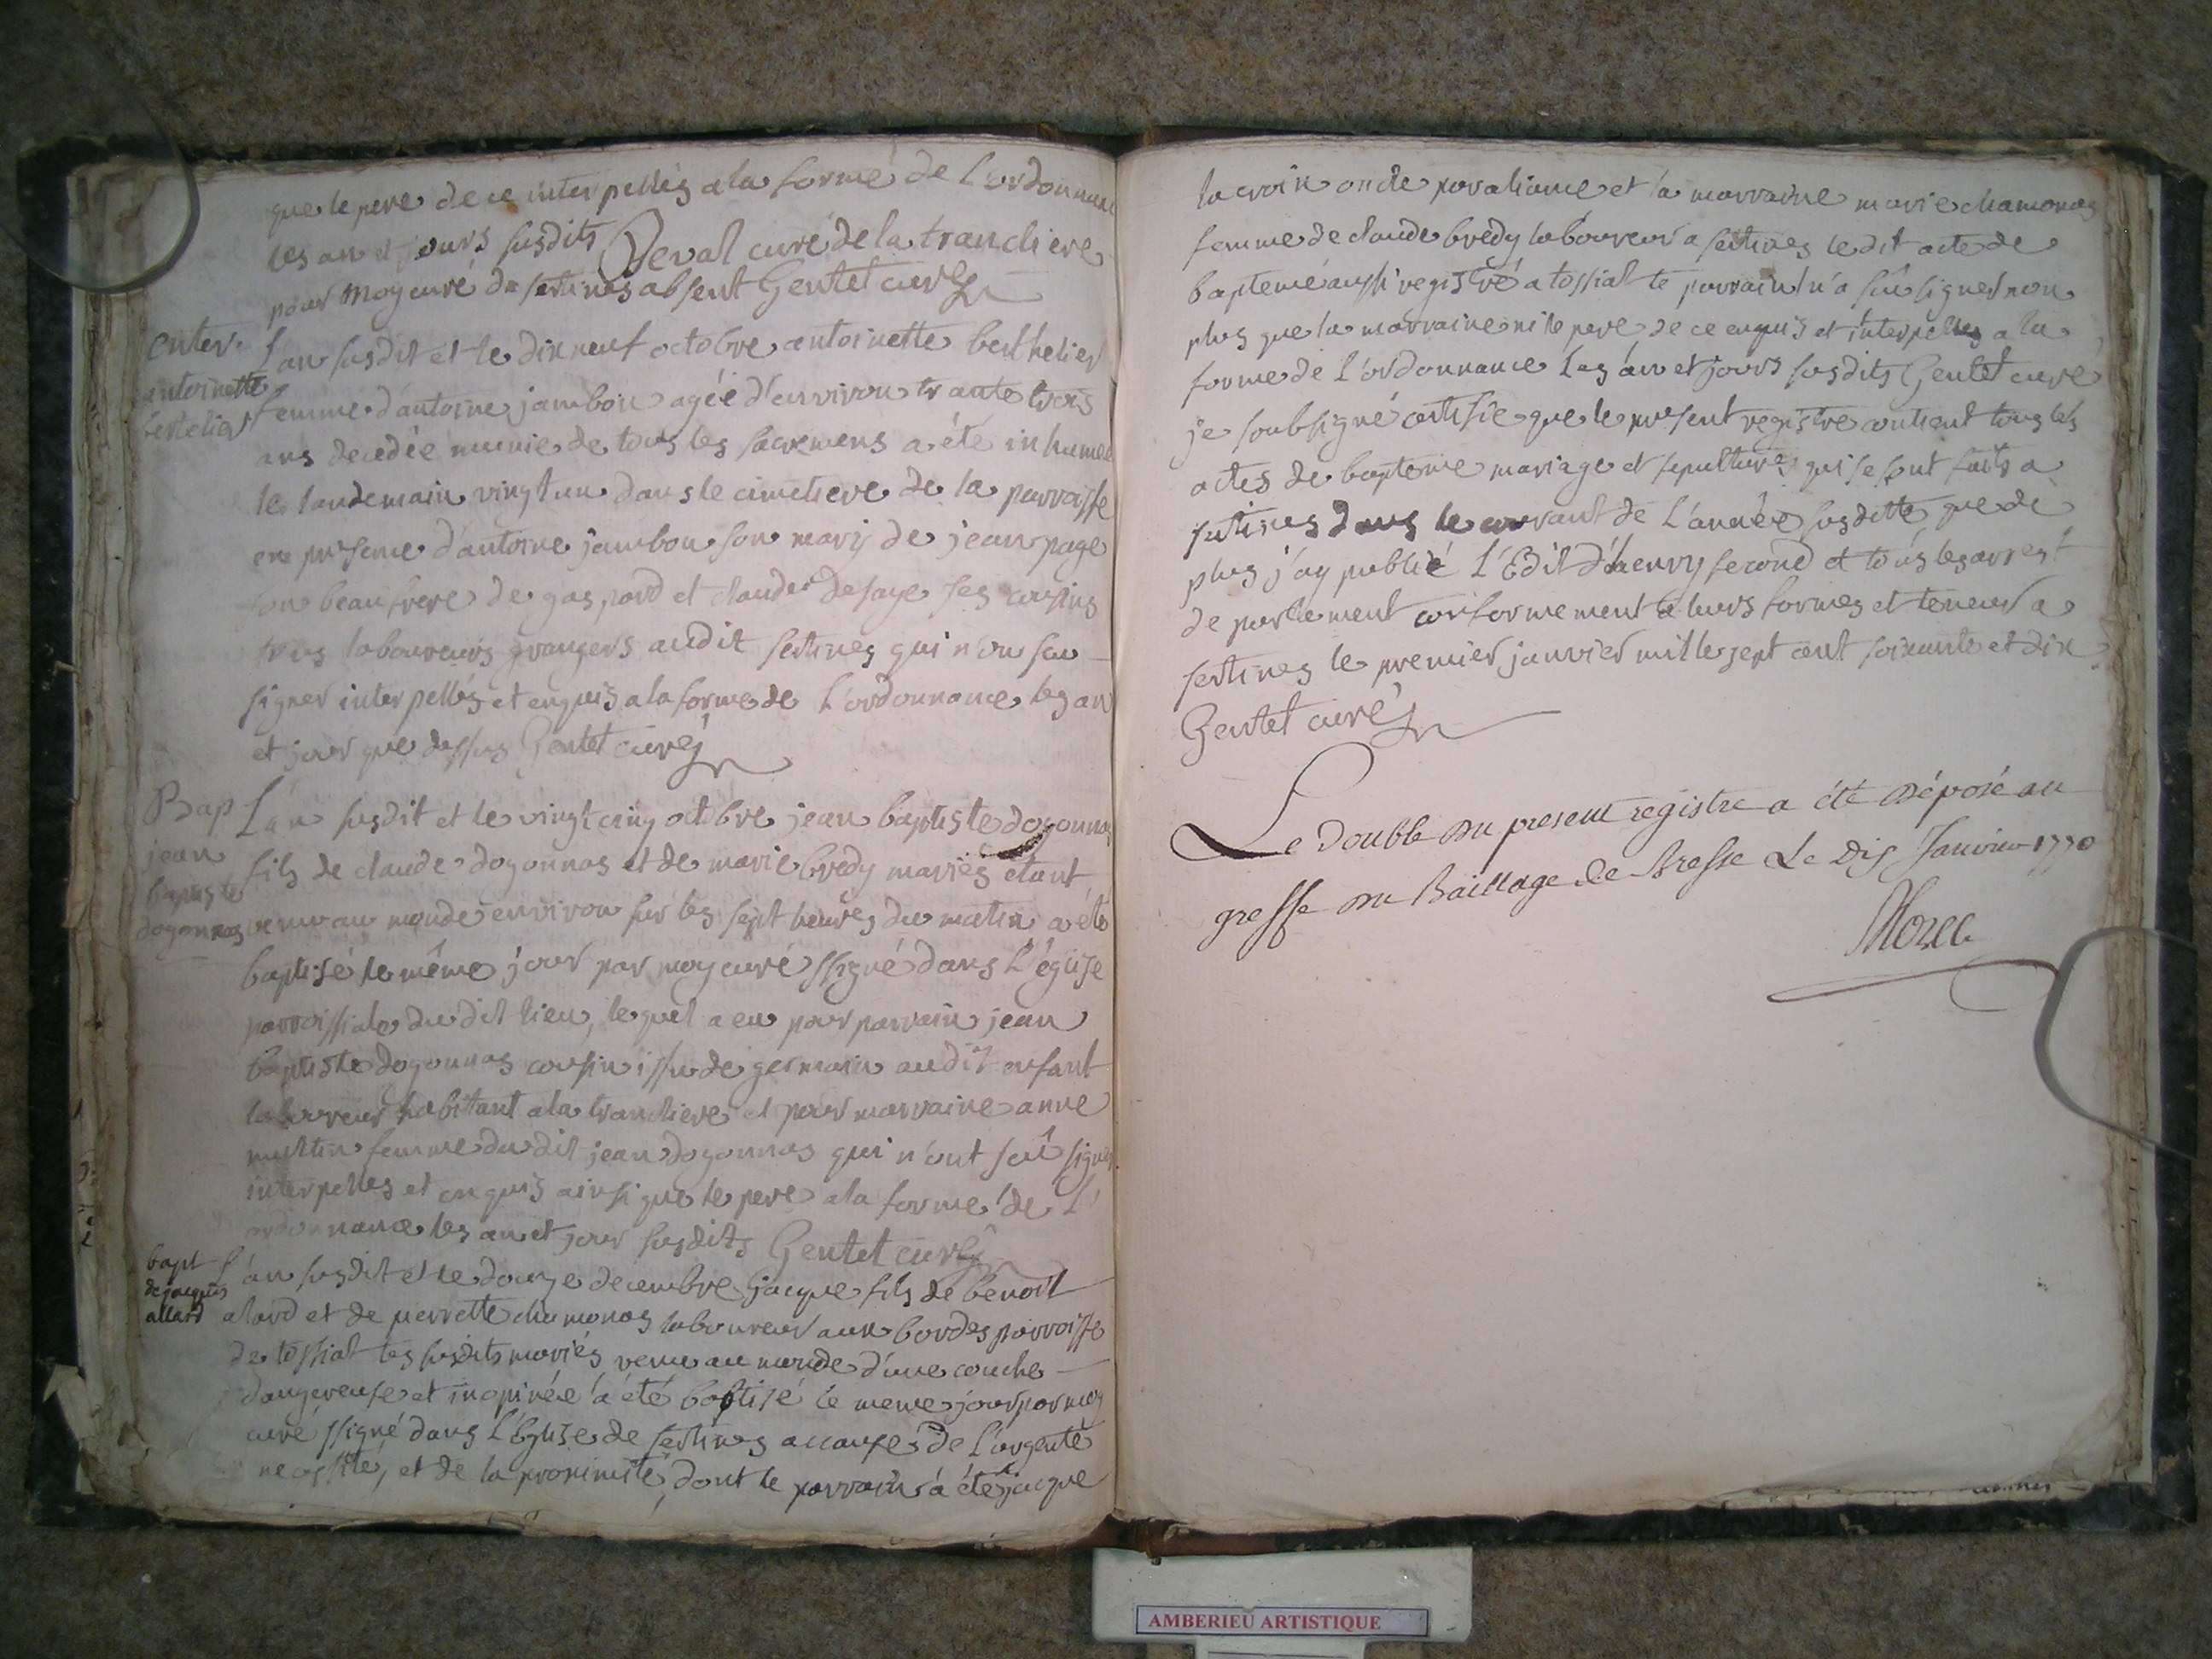 que le pere de ce interpellés a la forme de L'ordonnance
les an et jours susdits Deval curé de la tranchere
pour Moy curé de sertines absent Gentet curé
enter.
antoinette
bertelier
L'an susdit et le dix neuf octobre antoinette berthelier
femme d'antoine jambon agée d'environ trante trois
ans decedée munie de tous les sacremens a été inhumée
le landemain vingt un dans le cimetiere de la parroisse
en presence d'antoine jambon son mary de jean page
son beaufrere de gaspard et claude desaye ses cousins
tous laboureurs grangers audit sertines qui n'on scu
signer interpellés et enquis a la forme de L'ordonnance les an
et jour que dessus Gentet curé
Bap
jean
baptiste
dogonnas
L'an susdit et le vingt cinq octobre jean baptiste dogonnas
fils de claude dogonnas et de marie bredy mariés etant
venu au monde environ sur les sept heures du matin a été
baptisé le même jour par moy curé ssigné dans L'église
parroissiale du dit lieu, lequel a eu pour parrain jean
baptiste dogonnas cousin issu de germain audit enfant
laboureur habitant a la tranchere et pour marraine anne
femme du dit jean dogonnas qui n'ont scû signer
interpellés et enquis ainsi que le pere a la forme de L'
ordonnance les an et jour susdits Gentet curé
bapt
de jacques
allard
L'an susdit et le douze decembre jacque fils de benoit
alard et de pierrette chamonas laboureur aux bordes parroisse
de tossiat les susdits mariés venu au monde d'une couche
dangereuse et inopinée a été baptisé le meme jour par moy
curé ssigné dans L'Eglise de sertines a cause de L'urgente
necessité, et de la proximité, dont le parrain a été jacque
la croix oncle par aliance et la marraine marie chamonas
femme de claude bredy laboureur a sertines le dit acte de
bapteme aussi registré a tossiat le parrain n'a scû signer non
plus que la marraine ni le pere de ce enquis et interpellés a la
forme de L'ordonnance Les an et jours susdits Gentet curé
je soubsigné certifie que le present registre contient tous les
actes de bapteme mariage et sepultures qui se sont faits a
sertines dans le courant de L'année susditte que de
plus j'ay publié L'Edit d'henry second et tous les arrest
de parlement conformement a leurs formes et teneur a
sertines le premier janvier mille sept cent soixante et dix
Gentet curé
Le double du present registre a été déposé au
greffe du Baillage de Bresse Le dix Janvier 1770
Morel
AMBERIEU ARTISTIQUE